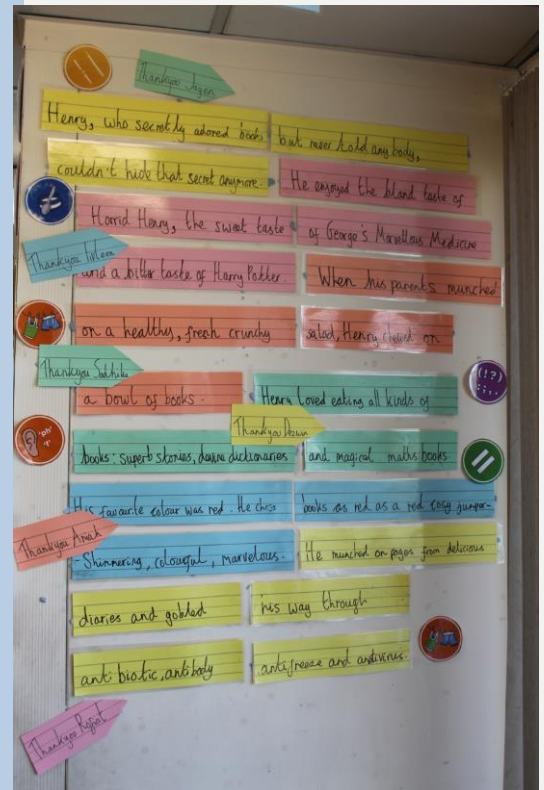 Thankyou Jayen
Henry, who secretly adored books but never told anybody,
couldn't hide that secret anymore. He enjoyed the bland taste of
Horrid Henry, the sweet taste of George's Marvellous Medicine
Thankyou
and a bitter taste of Harry Potter. When his parents munched
on a healthy, fresh crunchy salad, Henry chewed on
Thankyou
(!?)
a bowl of books. Henry loved eating all kinds of
Thankyou
books: superb stories, dictionaries and magical maths books
His favourite colour was red. He chose books as red as a red cosy jumper-
Thankyou
-Shinnering, colourful, marvelous. He munched on pages from delicious
diaries and gobled his way through
anti biotic, antibody antifreeze and antivirus.
Thankyou